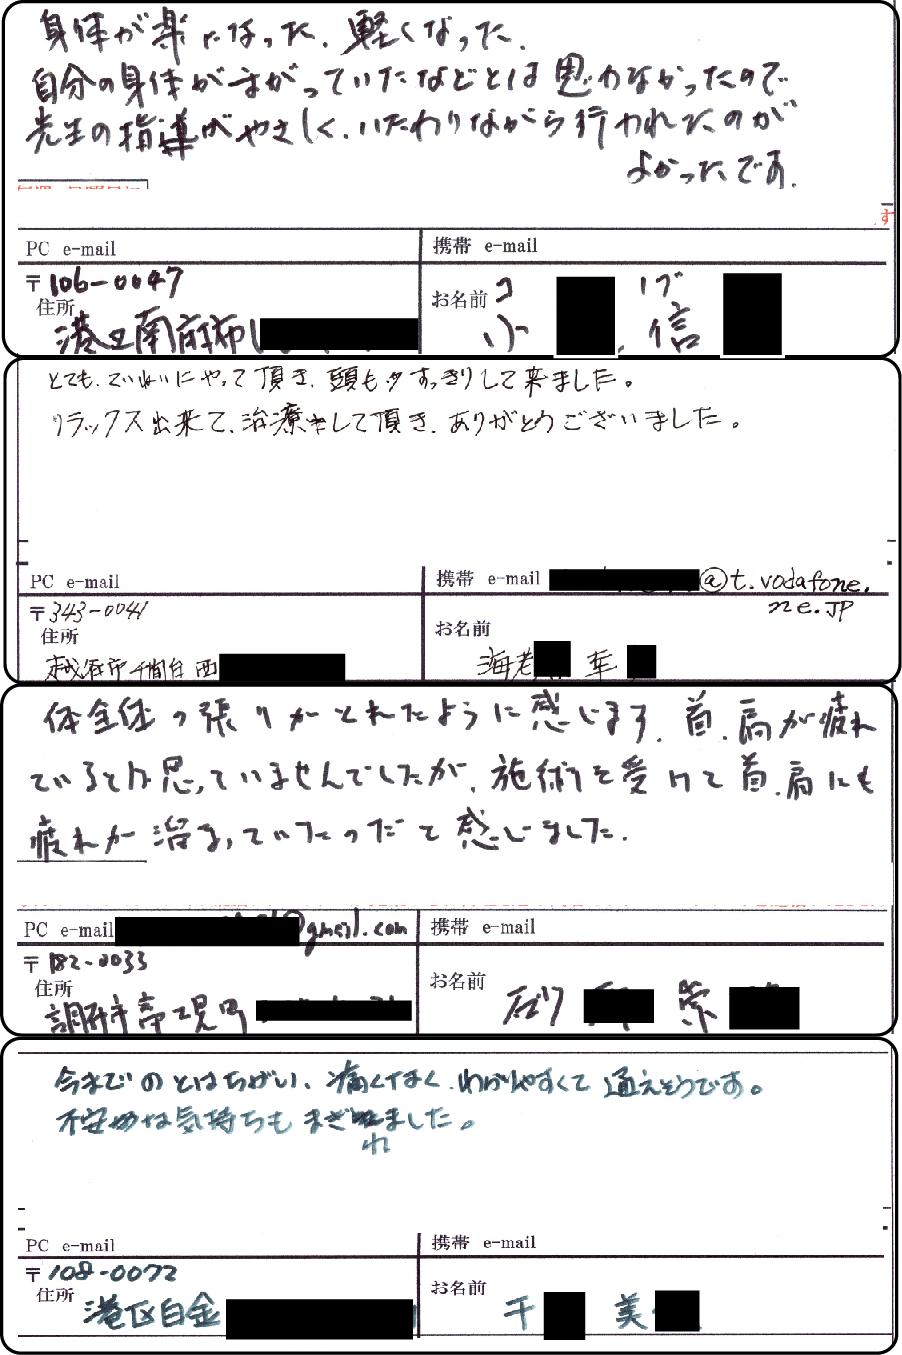 身体が楽になった、軽くなった、
自分の身体がまがっていたなどとは思わなかったので
先生の指導がやさしく、いたわりながら行われたのが
よかったです.
す
PC e-mail
携帯 e-mail
〒106-0047
住所
港区南麻布
お名前
コ
小 信
とても、ていねいにやって頂き、頭もすっきりして来ました。
リラックス出来て、治療をして頂き、ありがとうございました。
PC e-mail
携帯 e-mail @t.vodafone.
ne.JP
〒343-0041
住所
越谷市千間台西
お名前
海老 幸
体全体の張りがとれたように感じます、首、肩が疲れ
ているとは思っていませんでしたが、施術を受けて首、肩にも
疲れが溜まっていたのだと感じました.
PC e-mail @gmail.com
携帯 e-mail
〒182-0033
住所
調布市富士見町
お名前
今までのとはちがい、痛くなく、わかりやすくて通えそうです。
不安な気持ちもまぎれました。
PC e-mail
携帯 e-mail
〒108-0072
住所
港区白金
お名前
千 美